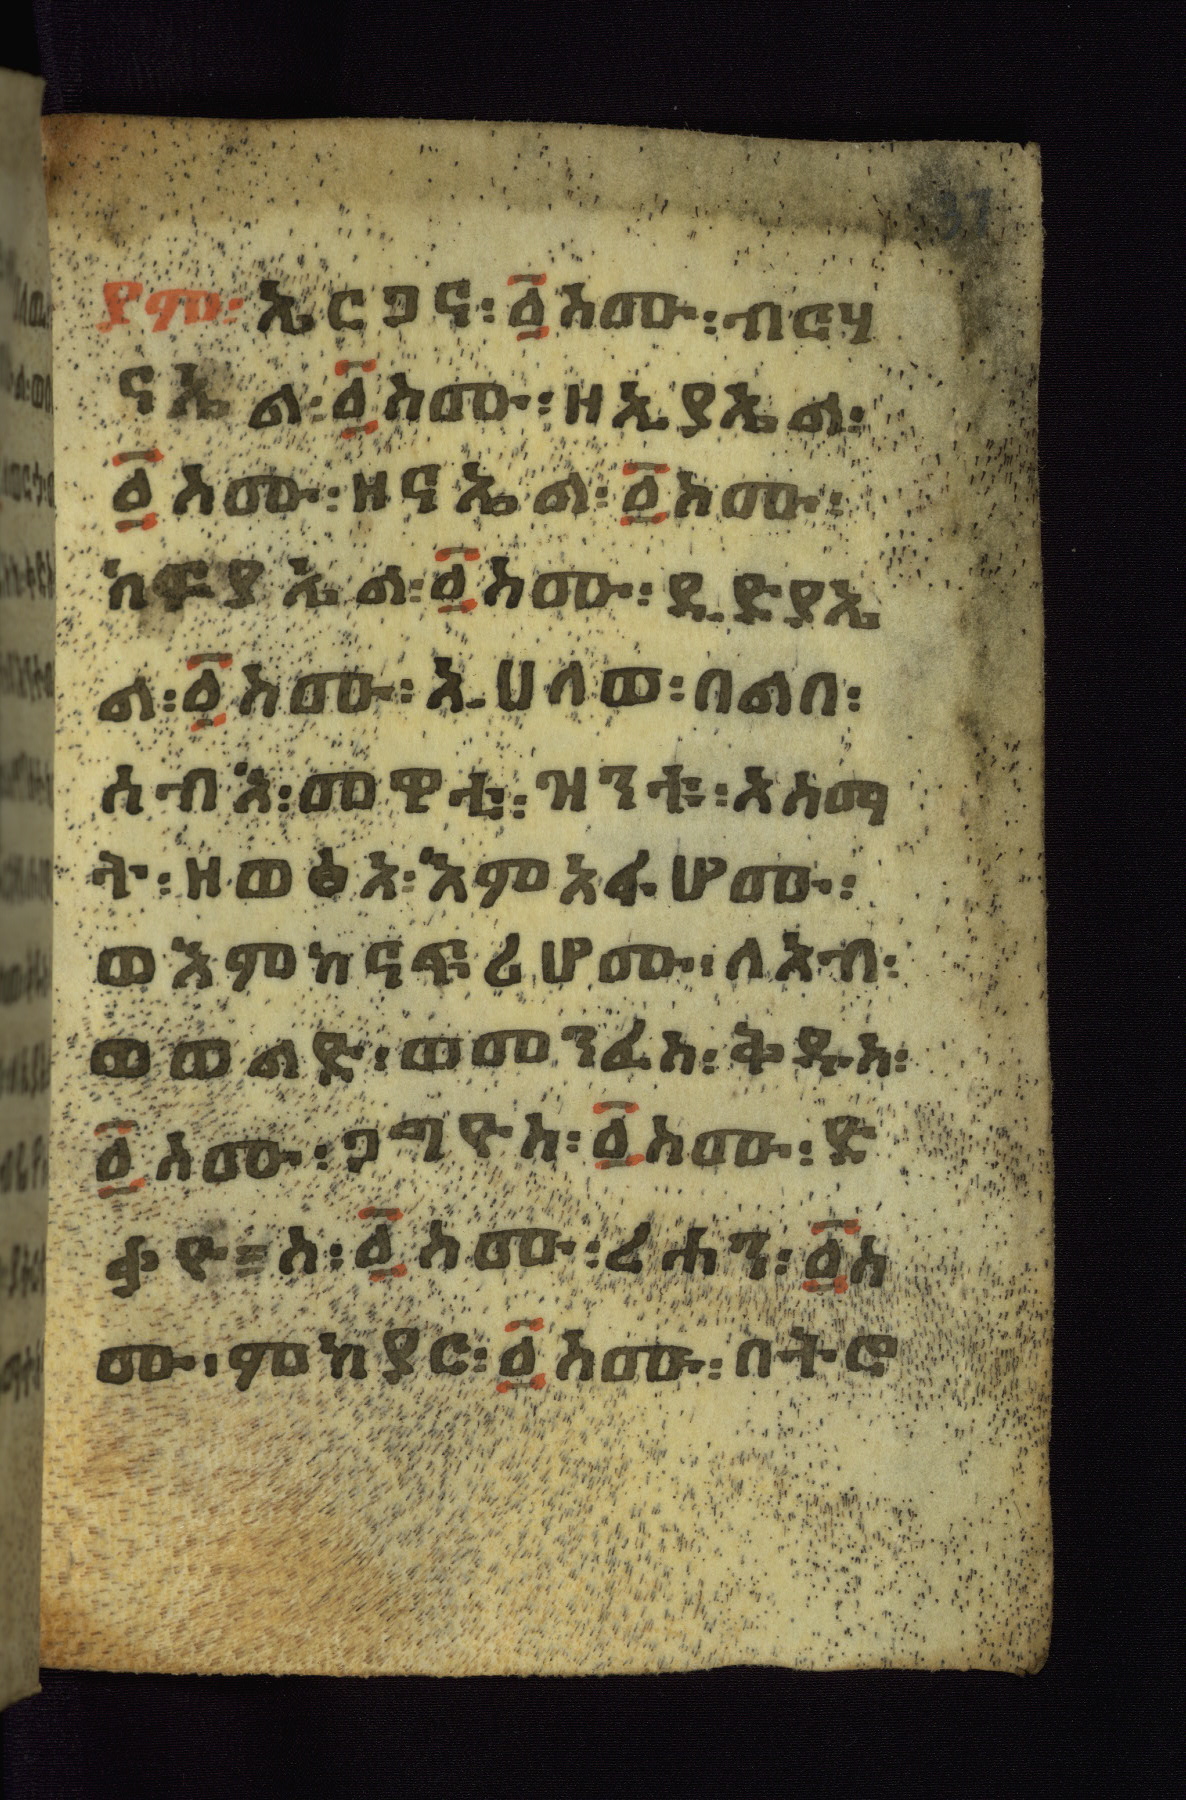 37
ያሥሙ፡ ኤርዖና፡ ፩ስሙ፡ ብርሃ
ናኤል፡ ፩ስሙ፡ ዘኢያኤል፡
፩ስሙ፡ ዘናኤል፡ ፩ስሙ፡
ከፍያኤል፡ ፩ስሙ፡ ዲድያኤ
ል፡ ፩ስሙ፡ ኢሀለወ፡ በልበ፡
ሰብእ፡ መዋቲ፡ ዝንቱ፡ አስማ
ት፡ ዘወፅአ፡ እምአፉሆሙ፡
ወእምከናፍሪሆሙ፡ ለአብ፡
ወወልድ፡ ወመንፈስ፡ ቅዱስ፡
፩ስሙ፡ ጋግዮስ፡ ፩ስሙ፡ ድ
ቆዮ፡ስ፡ ፩ስሙ፡ ረሐን፡ ፩ስ
ሙ፡ ምከያር፡ ፩ስሙ፡ በትሮ